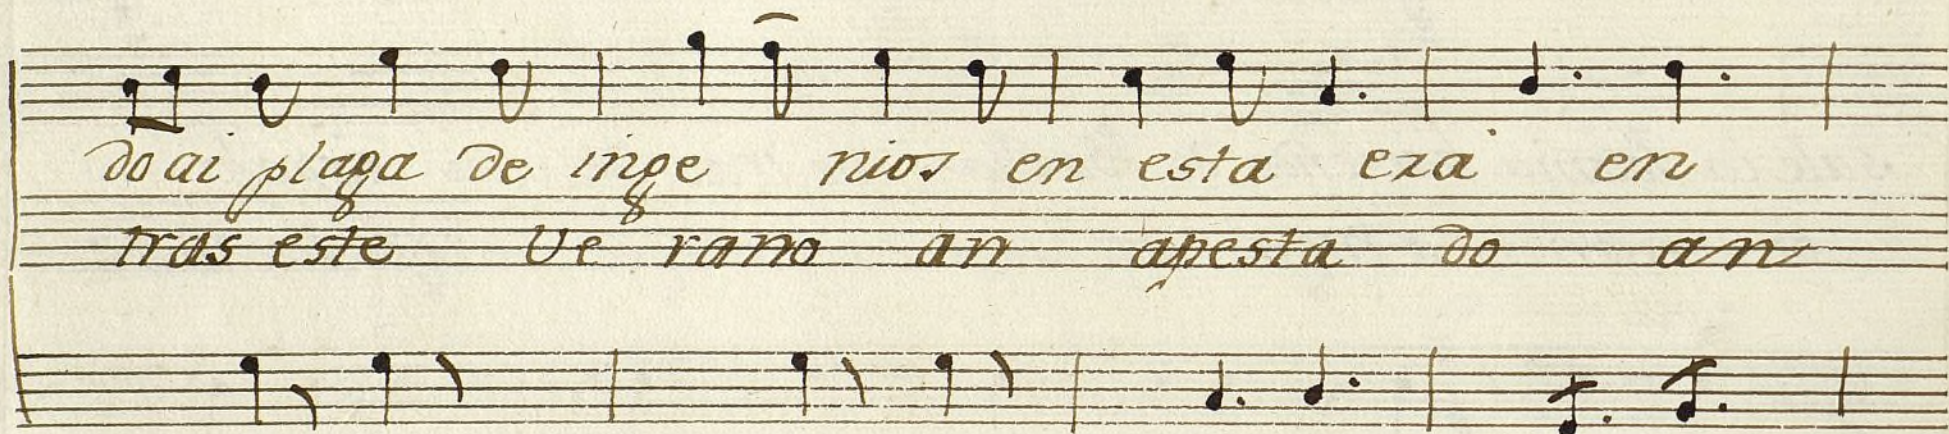 do ai plaga de inge nios en esta era en
tras este Ve rano an apesta do an